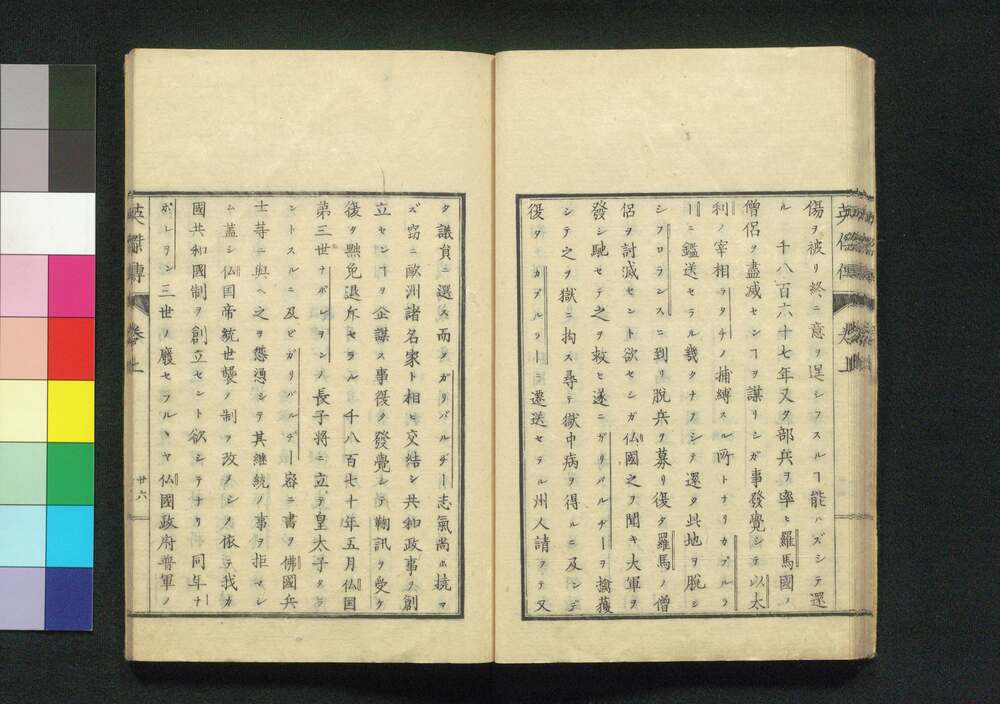 傷ヲ被リ終ニ意ヲ逞シフスルヿ能ハズシテ還
ル 千八百六十七年又タ部兵ヲ率ヒ羅馬國ノ
僧侶ヲ盡滅センヿヲ謀リシガ事發覺シテ以太
利ノ宰相ラタチノ捕縛スル所トナリカプルラ
ーニ鑑送セラル幾クナラシテ還タ此地ヲ脱シ
シフロランスニ到リ脱兵ヲ募リ復タ羅馬ノ僧
侶ヲ討滅セント欲セシガ仏國之ヲ聞キ大軍ヲ
發シ馳セテ之ヲ救ヒ遂ニガリバルヂーヲ擒獲
シテ之ヲ獄ニ拘ス尋テ獄中病ヲ得ルニ及ンデ
復タカプルラーニ還送セラル州人請フテ又
タ議員ニ選ス而タガリバルヂー志氣尚ホ撓マ
ズ窃ニ歐洲諸名家ト相ヒ交結シ共和政事ヲ創
立センヿヲ企謀ス事復タ發覺シテ鞠訊ヲ受ケ
復タ黜免退斥セラル 千八百七十年五月仏国
第三世ナポレヲンノ長子將ニ立テ皇太子タラ
ントスルニ及ビガリバルヂー容ニ書ヲ佛國兵
士等ニ與ヘ之ヲ慫慂シテ其継統ノ事ヲ拒マシ
ム蓋シ仏国帝統世襲ノ制ヲ改メシメ依テ我カ
國共和國制ヲ創立セント欲シテナリ 同年ナ
ポレヲン三世ノ廢セラルヽヤ仏國政府普軍ノ
英傑傳
巻上
廿六